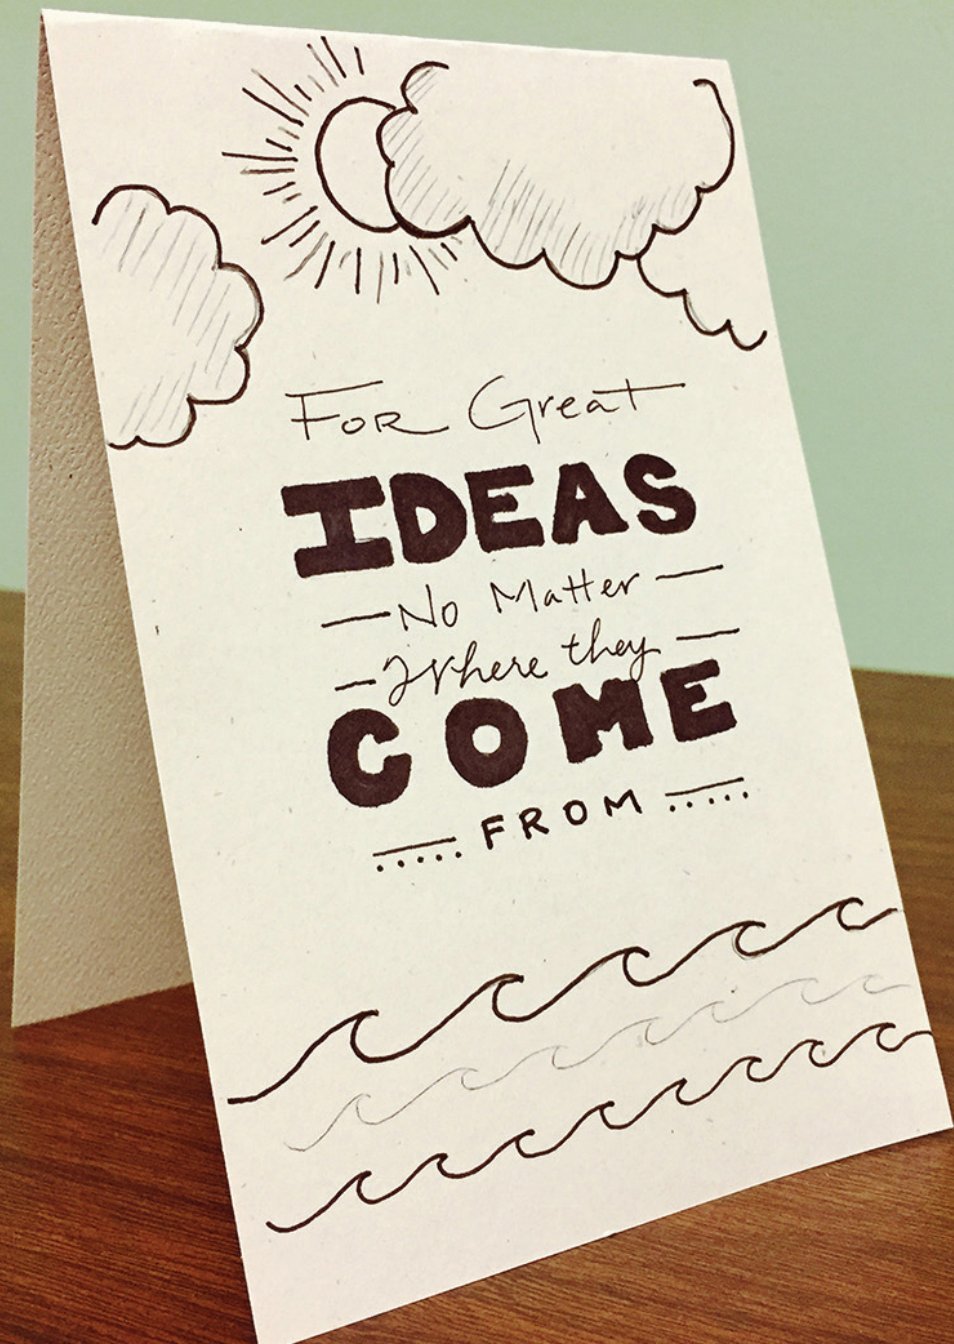 For Great
IDEAS
No Matter
Where they
COME
FROM